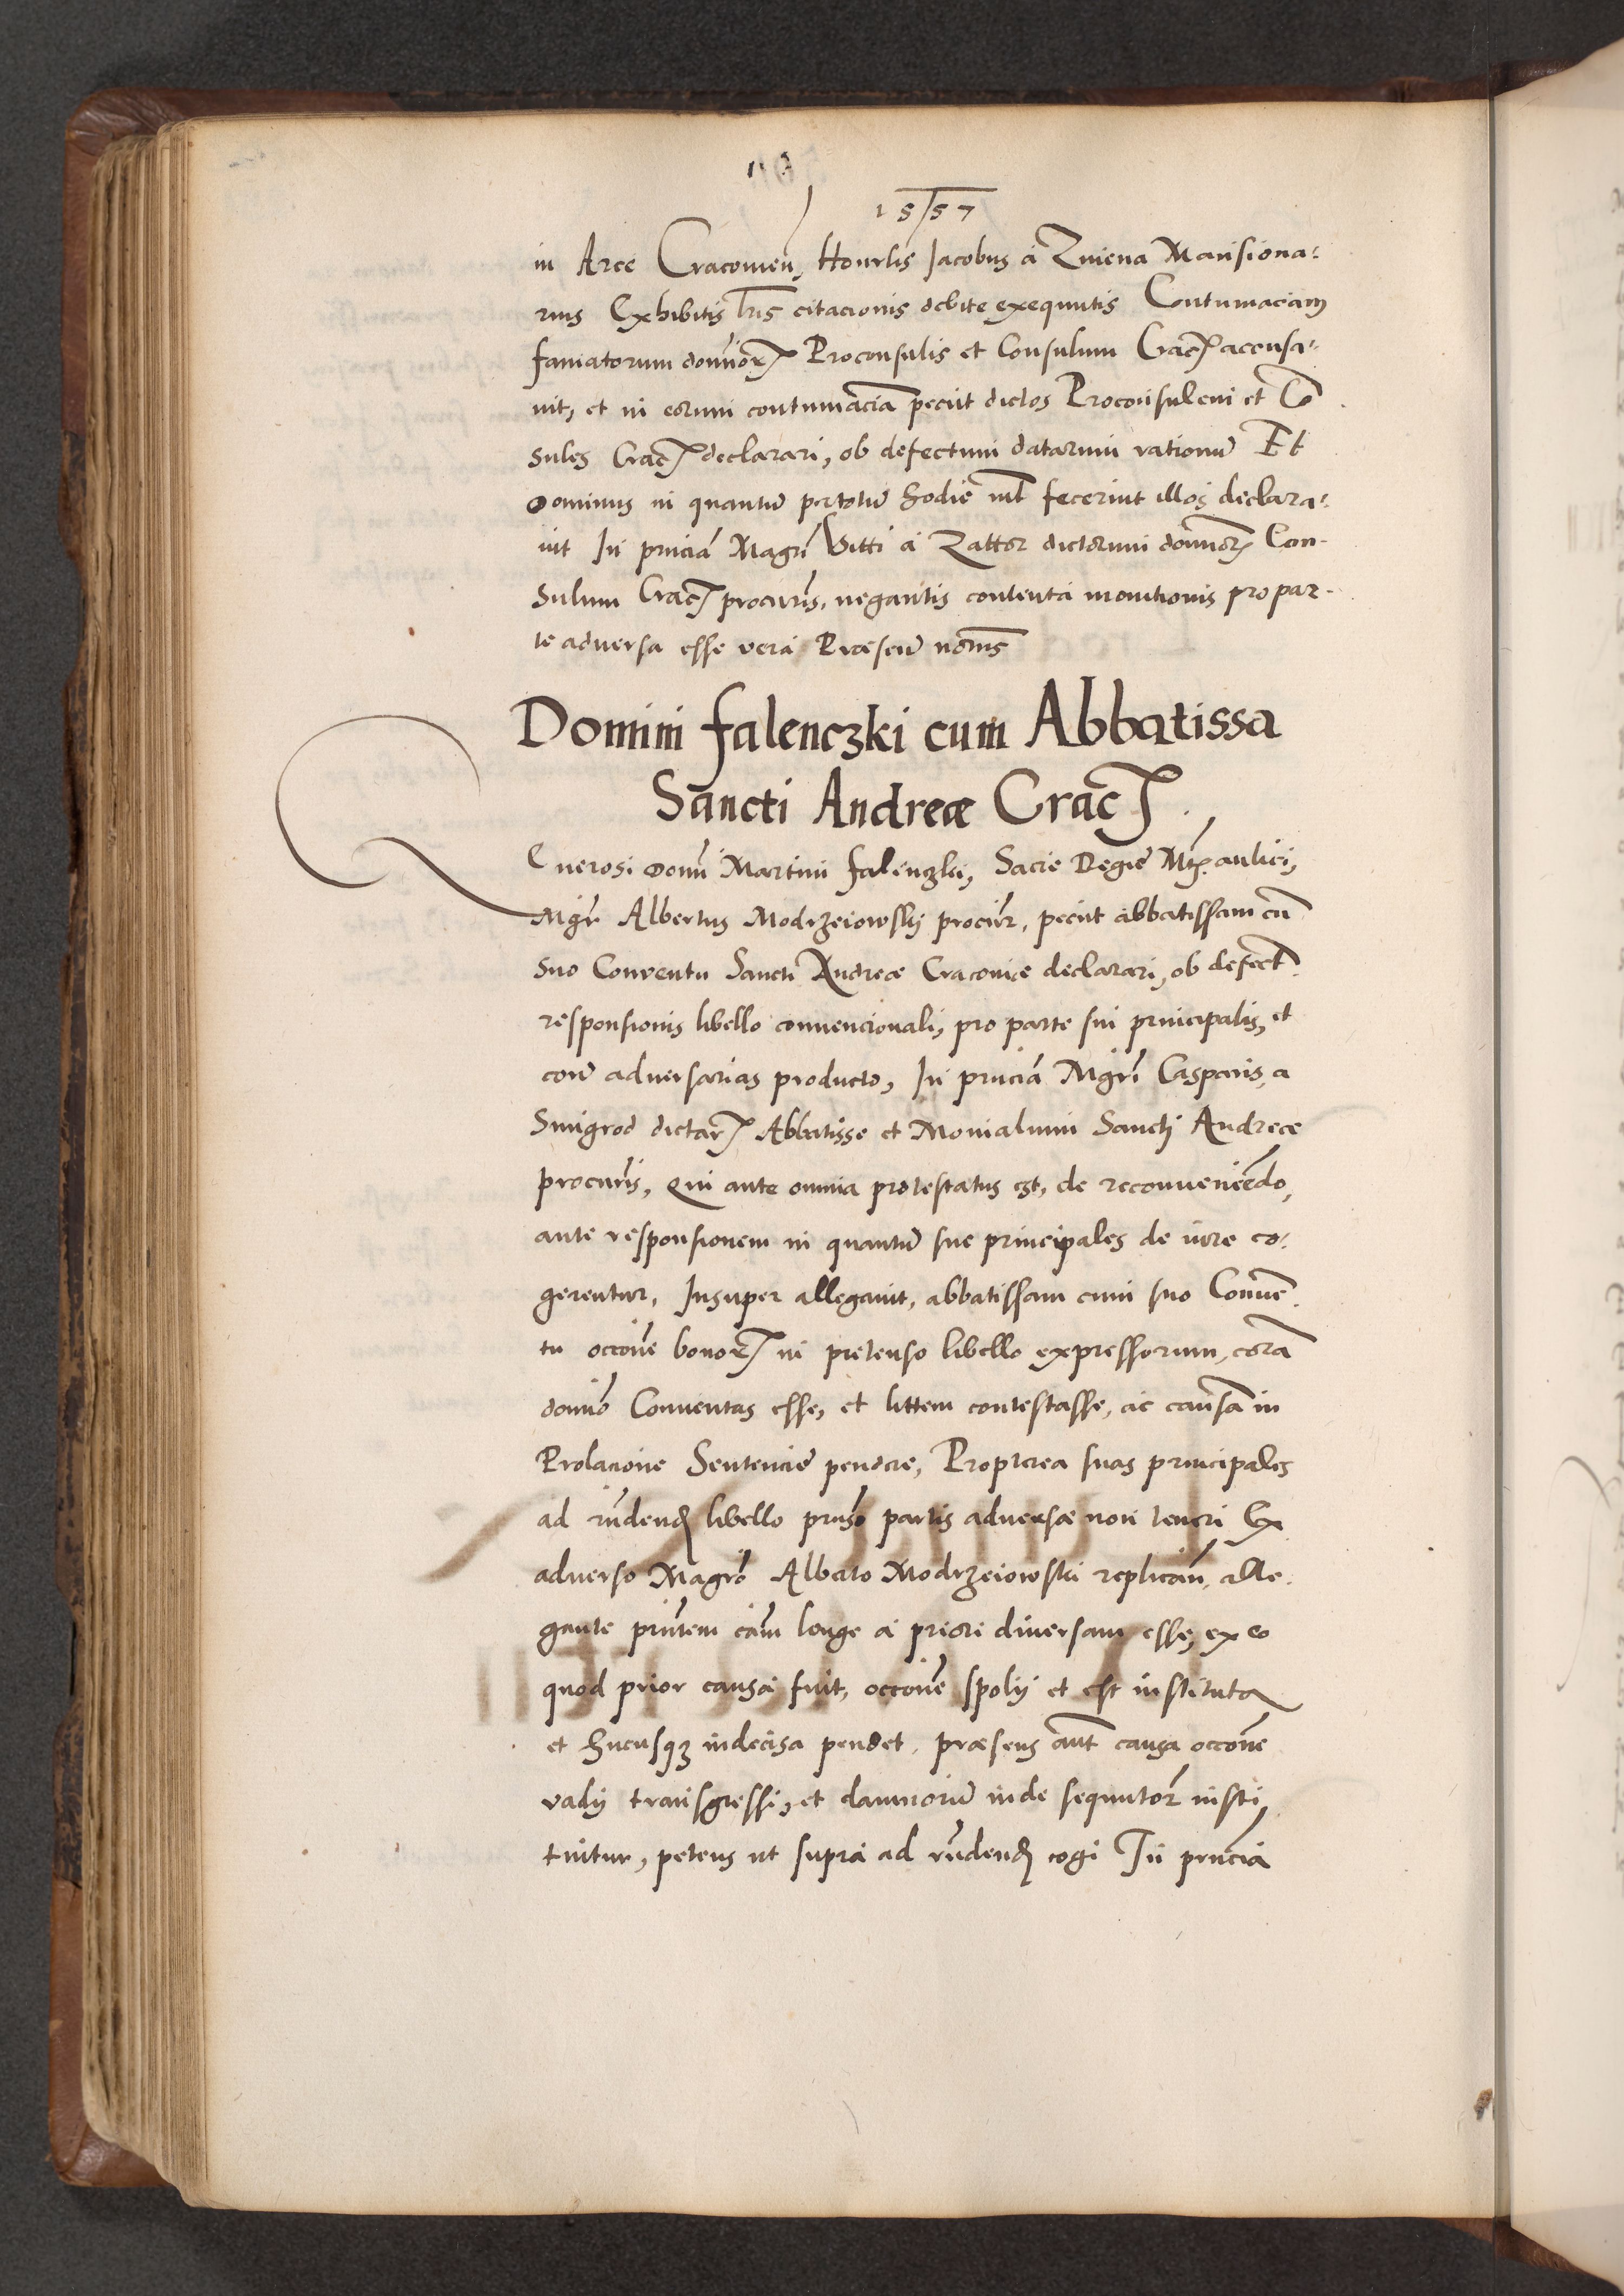 1557
in Arce Cracovien, Honrlis Jacobus a Zniena Mansiona-
rius Exhibitis lris citacionis debite exequutis Contumaciam
famatorum domior Proconsulis et Consulum Crac accusa-
vit, et in eorum contumaciã peciit dictos Proconsulem et Cõ
sules Crac declarari, ob defectum datarum rationũ Et
Dominus in quantũ per totũ hodie nil fecerint illos declara-
vit In pnciã Magri Vitti a Zattor dictorum domor Con-
sulum Crac procuris, negantis contenta monitionis pro par-
te adversa esse vera Præsen noms
Domini Falenczki cum Abbatissa
Sancti Andreæ Crac
Generosi Domi Martini Falenczki, Sacre Regie Mtis aulici,
Mgr Albertus Modrzeiowsky procur, peciit abbatissam cũ
suo Conventu Sancti Andreæ Cracoviæ declarari, ob defect
responsionis libello convencionali, pro parte sui principalis, et
contra adversarias producto, In pnciã Mgri Casparis, a
Smigrod dictar Abbatisse et Monialium Sancti Andreæ
procuris, Qui ante omnia protestatus est, de reconveniẽdo,
ante responsionem in quantũ sue principales de iure co-
gerentur, Insuper allegavit, abbatissam cum suo Convẽ
tu occone bonor in pretenso libello expressorum, corã
domio Conventas esse, et littem contestasse, ac causã in
Prolacione Sentencie pendere, Propterea suas principales
ad rndend libello pnso partis adversæ non teneri Ex
adverso Magro Alberto Modrzeiowski replican, alle-
gante pntem cam longe a priori diversam esse, ex eo
quod prior causa fuit, occone spolij et est instituta
et hucusq indecisa pendet, præsens aut causa occone
vadij transgressi, et damnorũ inde sequutor insti
tuitur, petens ut supra ad rndend cogi In pnciã